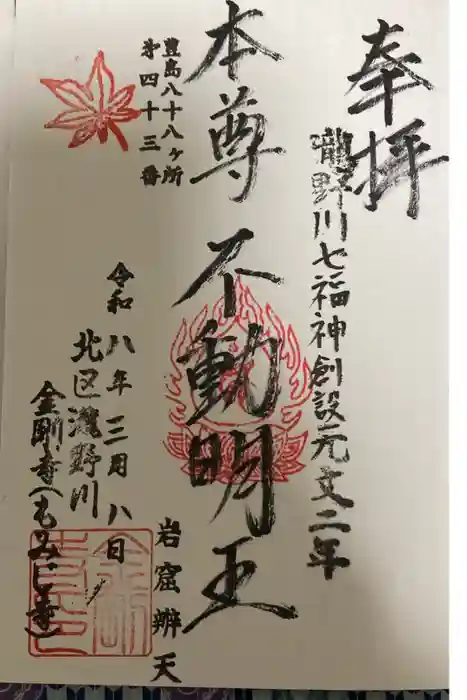 奉拝
瀧野川七福神創設元文二年
本尊 不動明王
豊島八十八ヶ所
第四十三番
岩窟辨天
令和八年三月八日
北区瀧野川
金剛寺(もみじ寺)